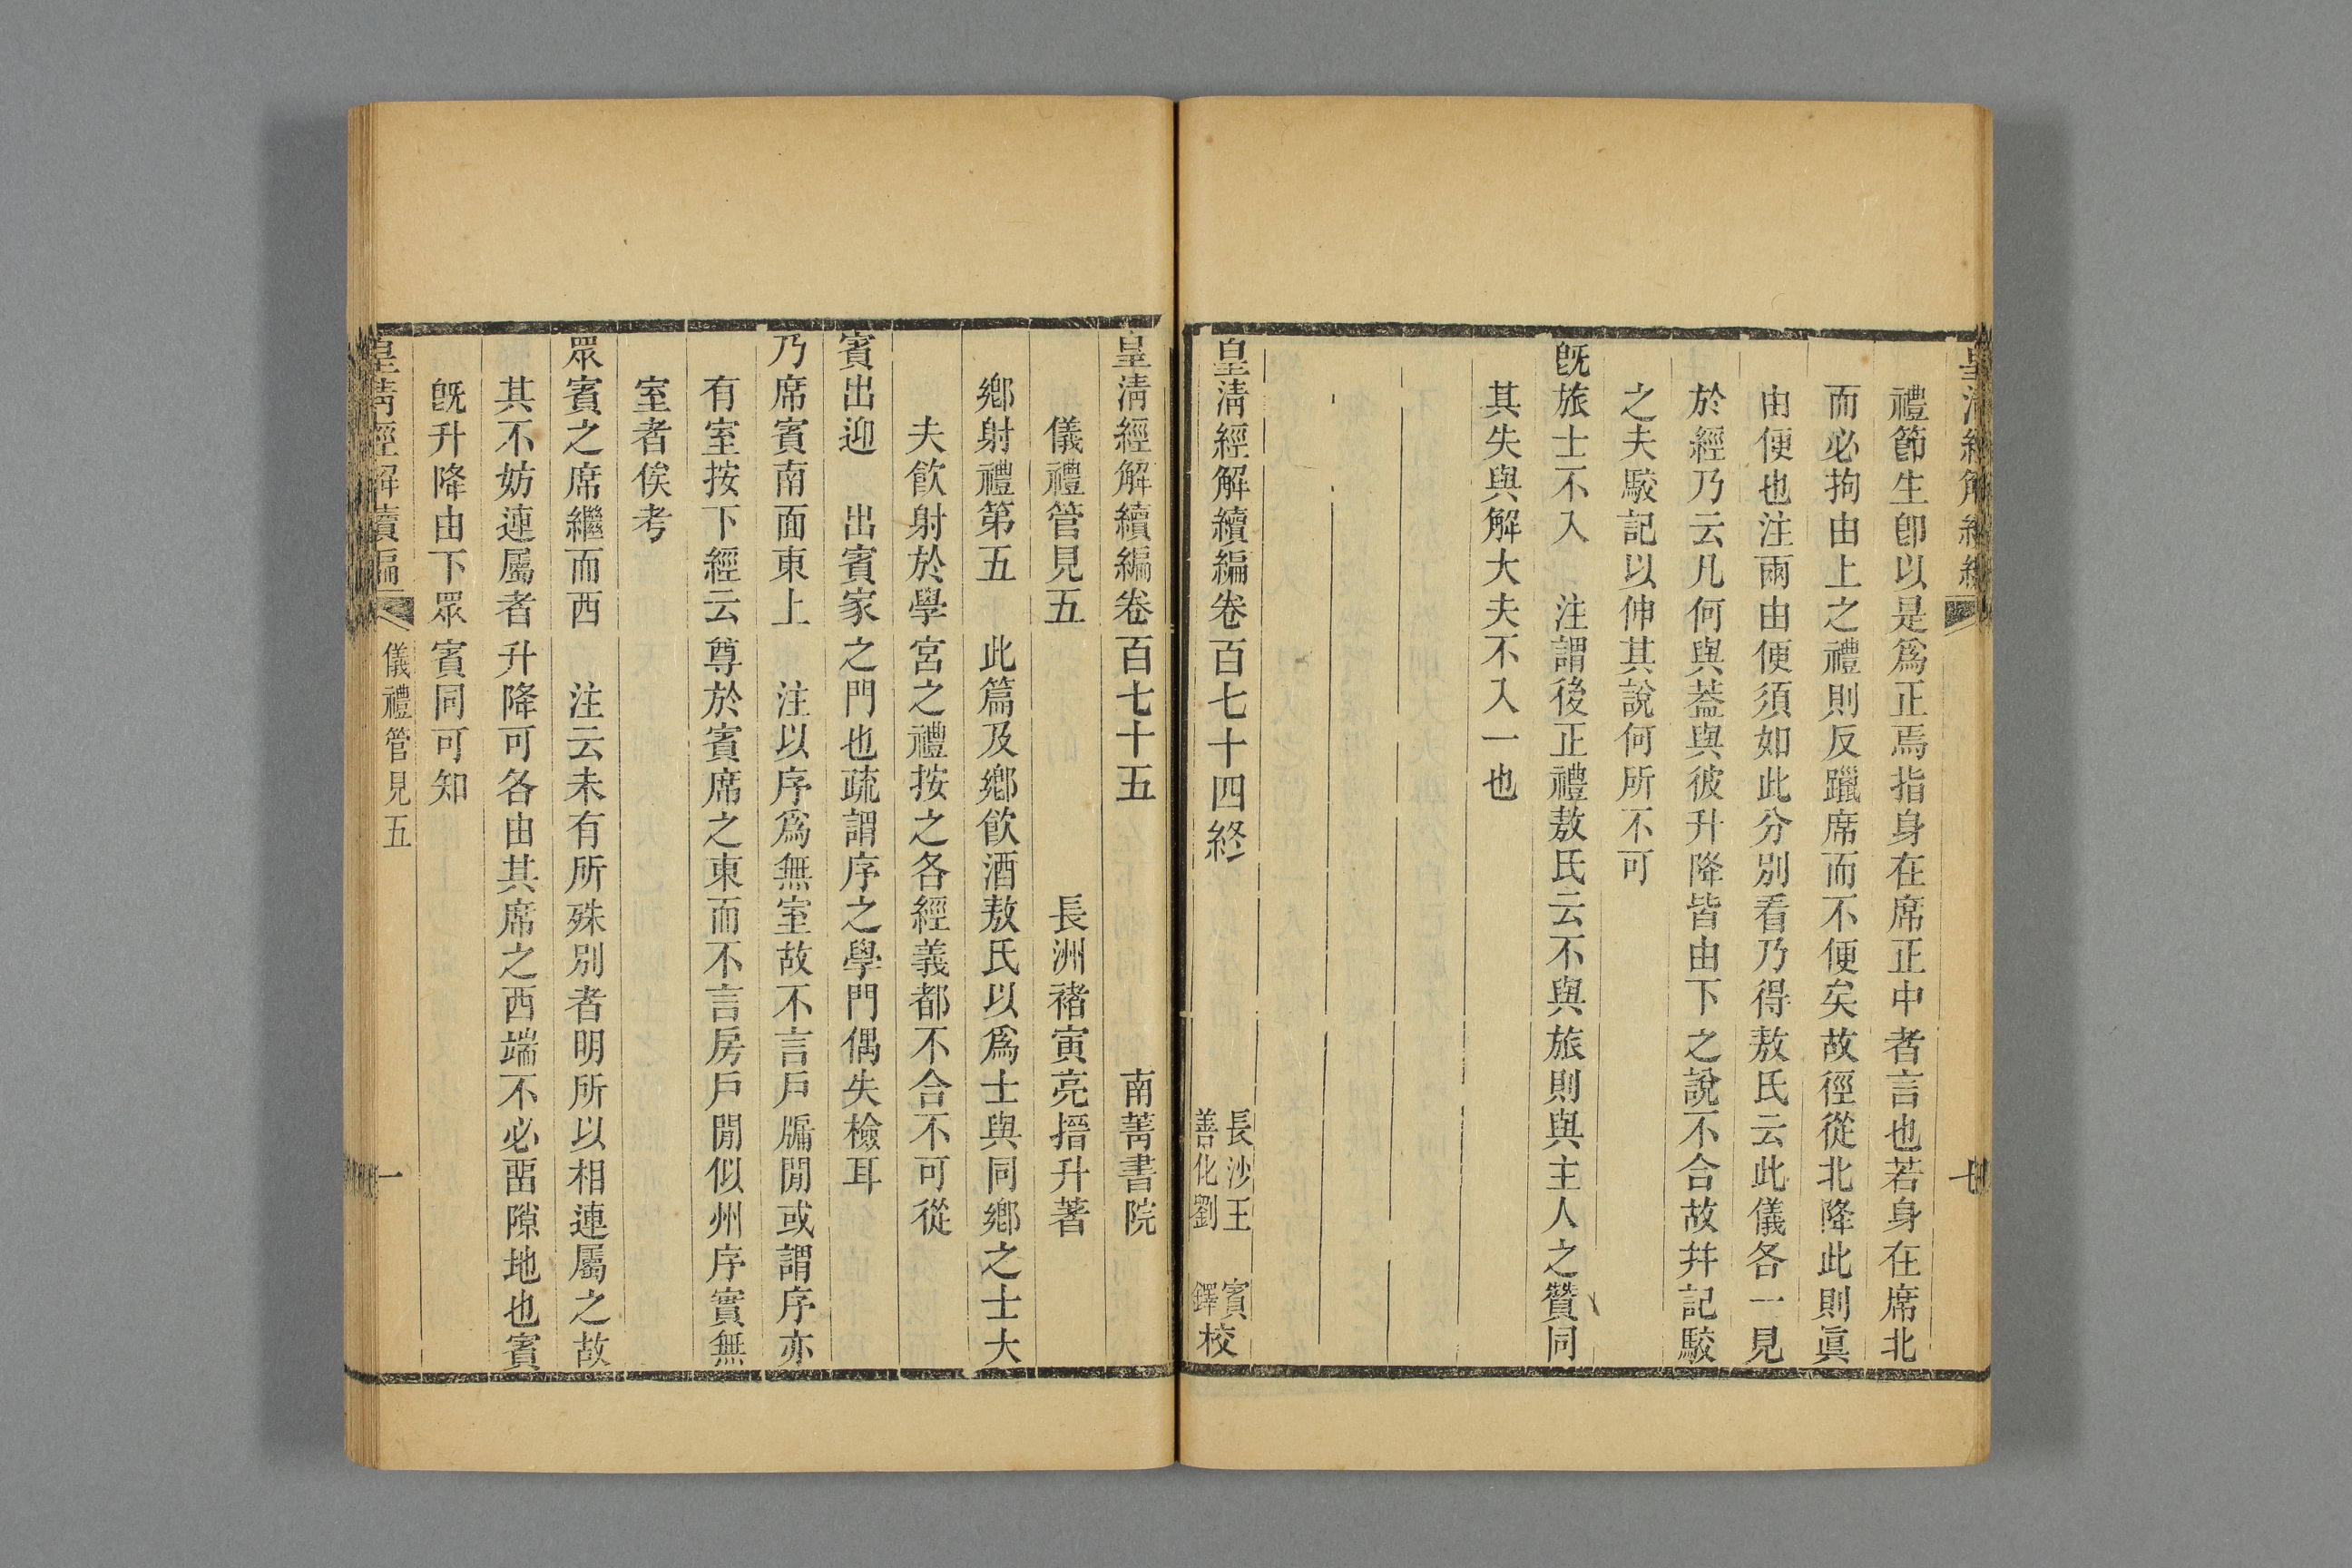 禮節生卽以是爲正焉指身在席正中者言也若身在席北
而必拘由上之禮則反躐席而不便矣故徑從北降此則眞
由便也注兩由便須如此分別看乃得敖氏云此儀各一見
於經乃云凡何與蓋與彼升降皆由下之說不合故幷記駮
之夫駮記以伸其說何所不可
旣旅士不入　注謂後正禮敖氏云不與旅則與主人之贊同
其失與解大夫不入一也
皇淸經解續編卷百七十四終
長沙王　賓
善化劉　鐸
校
皇淸經解續編卷百七十五　南菁書院
儀禮管見五　長洲褚寅亮搢升著
鄕射禮第五　此篇及鄕飮酒敖氏以爲士與同鄕之士大
夫飮射於學宮之禮按之各經義都不合不可從
賓出迎　出賓家之門也疏謂序之學門偶失檢耳
乃席賓南面東上　注以序爲無室故不言戶牖閒或謂序亦
有室按下經云尊於賓席之東而不言房戶閒似州序實無
室者俟考
眾賓之席繼而西　注云未有所殊別者明所以相連屬之故
其不妨連屬者升降可各由其席之西端不必畱隙地也賓
旣升降由下眾賓同可知
皇淸經解續編　儀禮管見五　一